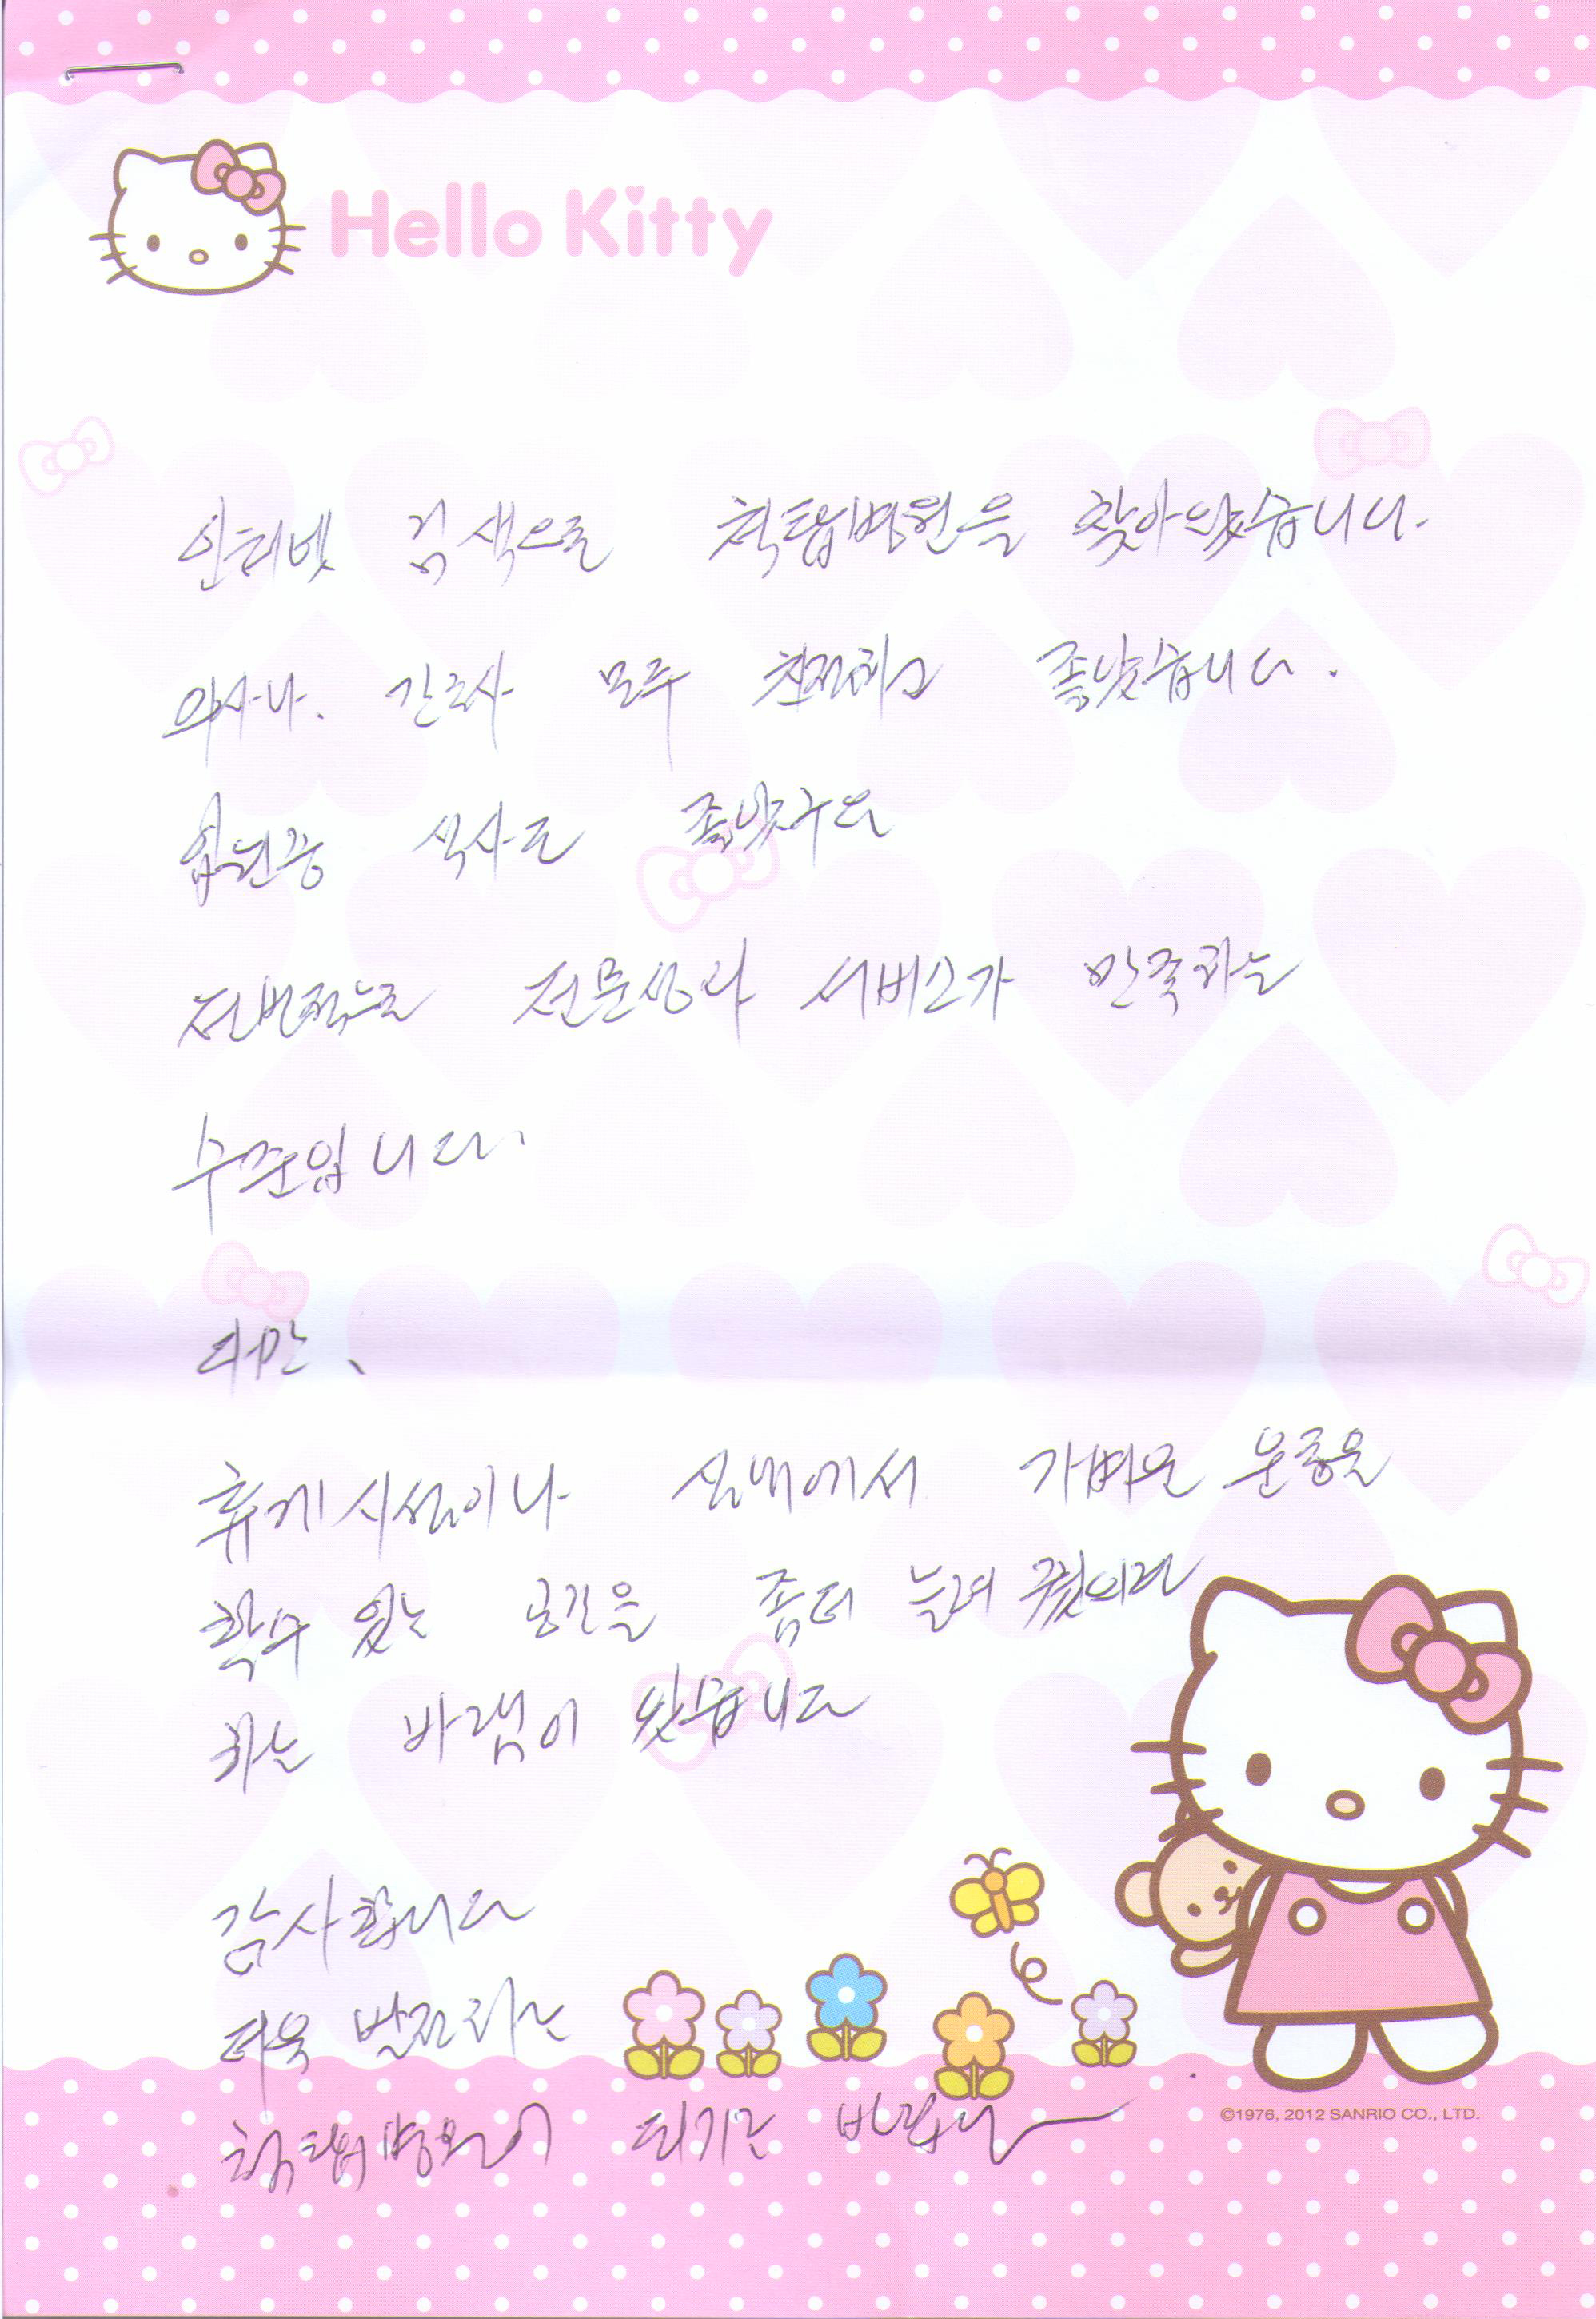 Hello Kitty
인터넷 검색으로 척탑병원을 찾아왔습니다.
의사나. 간호사 모두 친절하고 좋았습니다.
입원중 식사도 좋았구요
전반적으로 전문성나 서비스가 만족하는
수준입니다.
다만、
휴게시설이나 실내에서 가벼운 운동을
할수 있는 공간을 좀더 늘려 주었으면
하는 바램이 있습니다
감사합니다
더욱 발전하는
척탑병원이 되기를 바랍니다
©1976, 2012 SANRIO CO., LTD.